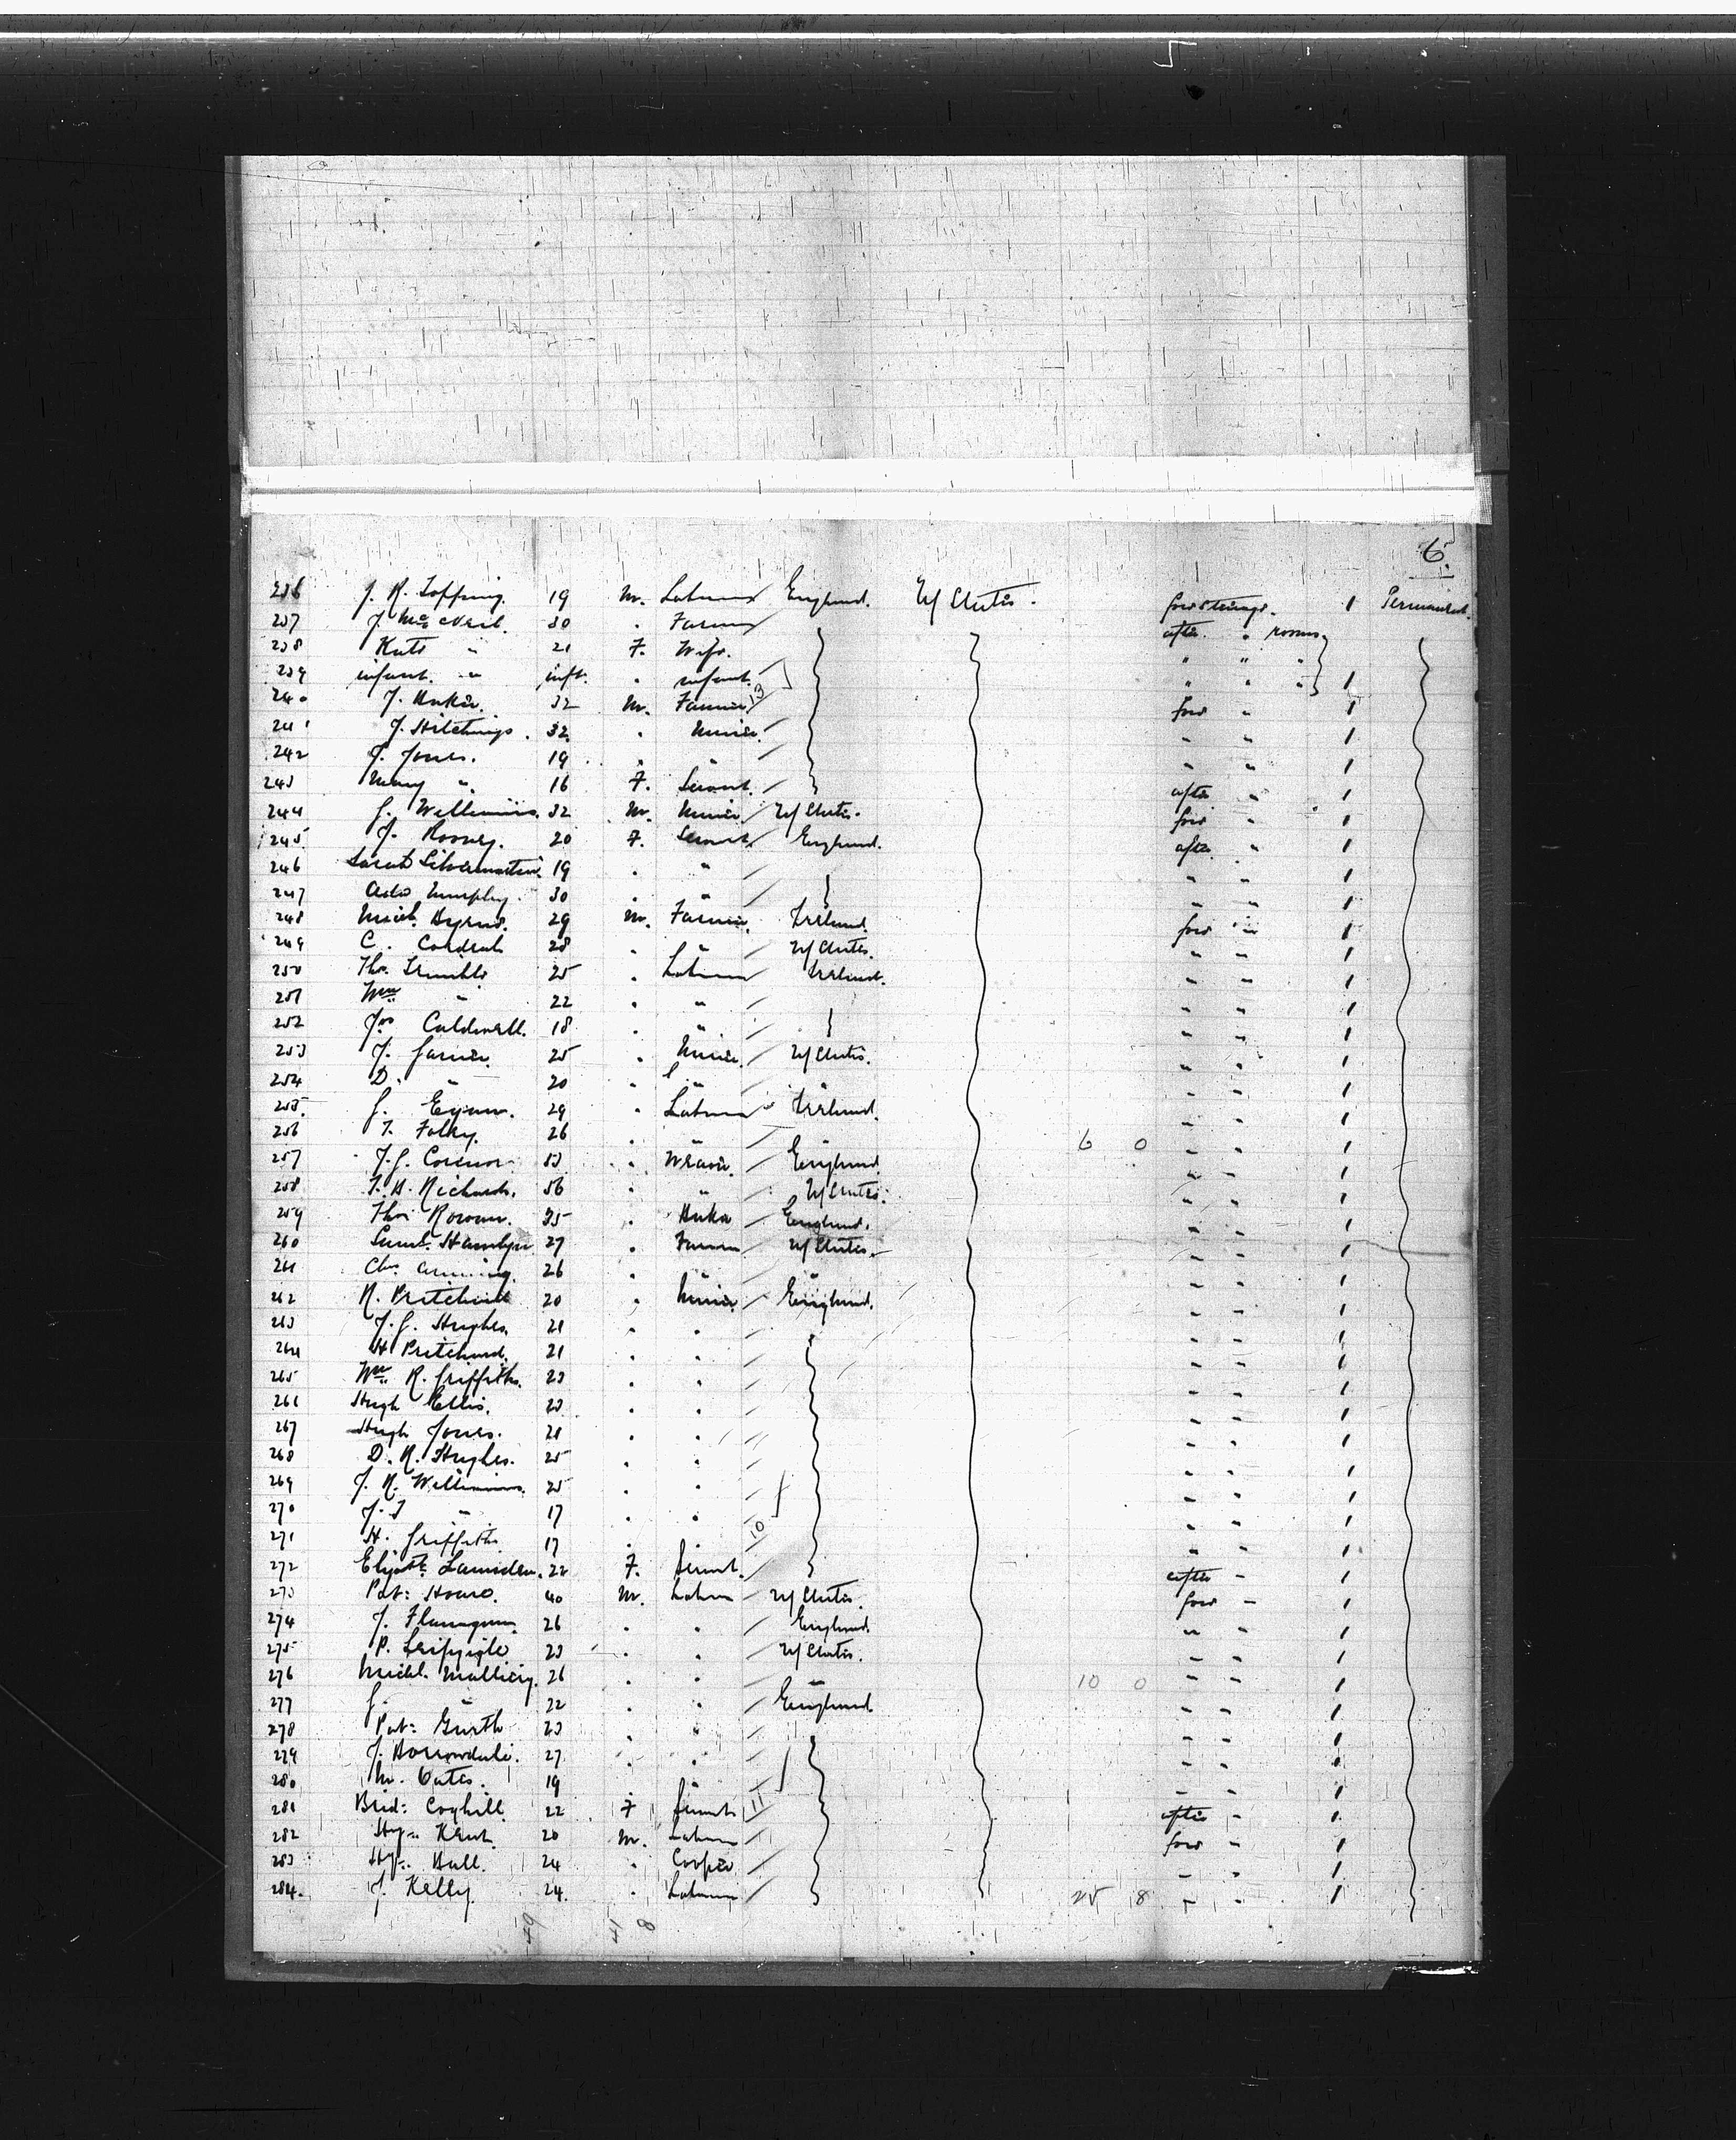 6.
236 J. R. Topping. 19 M. Labourer England. U/States. for'd steerage. 1 Permanent.
237 J. McNeil. 30 " Farmer after " rooms
238 Kate " 21 F. Wife. " " "
239 infant. " inft. " infant. " " " 1
240 J. Baker. 32 M. Farmer 13 for'd " 1
241 J. Hitchings. 32. " Miner. " " 1
242 J. Jones. 19 " " " " 1
243 Mary " 16 F. Servant. after " 1
244 J. Williams. 32 M. Miner U/States. for'd " 1
245 J. Rooney. 20 F. Servant England. after " 1
246 Sarah 19 " " " " 1
247 Murphy. 30 " " " " 1
248 Mich. Byrne. 29 M. Farmer. Ireland. for'd " 1
249 C. 28 " " U/States. " " 1
250 Thos. Trimble 25 " Labourer Ireland. " " 1
251 Wm " 22 " " " " 1
252 Jas. Caldwell. 18 " " " " 1
253 J. 25 " Miner. U/States. " " 1
254 D. " 20 " " " " " 1
255. J. Egan. 29 " Labourer Ireland. " " 1
256 T. 26 " " " 6 0 " " 1
257 J. J. 53 " Weaver. England. " " 1
258 Richards. 56 " " U/States. " " 1
259 Thos Rowan. 35 " Baker England. " " 1
260 Saml. Hamlyn 27 " Farmer U/States. " " 1
261 26 " " " " " 1
262 R. Pritchard 20 " Miner England. " " 1
263 J. J. Hughes. 21 " " " " 1
264 H Pritchard. 21 " " " " 1
265 Wm R. Griffiths. 23 " " " " 1
266 Hugh Ellis. 23 " " " " 1
267 Hugh Jones. 21 " " " " 1
268 D. R. Hughes. 25 " " " " 1
269 J. R. Williams. 25 " " " " 1
270 J. T " 17 " " " " 1
271 H. Griffiths 17 " " 10 " " 1
272 Elizth. Lamsden. 22 F. Servant. after " 1
273 Pat: 40 M. Labourer U/States. for'd " 1
274 J. Flanagan. 26 " " England. " " 1
275 P. 23 " " U/States. " " 1
276 Michl. 26 " " " 10 0 " " 1
277 J. " 22 " " England " " 1
278 Pat: 23 " " " " 1
279 J. Borrowdale. 27. " " " " 1
280 M. Oates. 19 " " " " 1
281 Brid: Coghill. 22 F Servant 11 after " 1
282 Hy.. Kent. 20 M. Labourer for'd " 1
283 Hy.. Hall. 24 " Cooper " " 1
284. J. Kelly. 24. " Labourer 25 8 " " 1
49 41 8